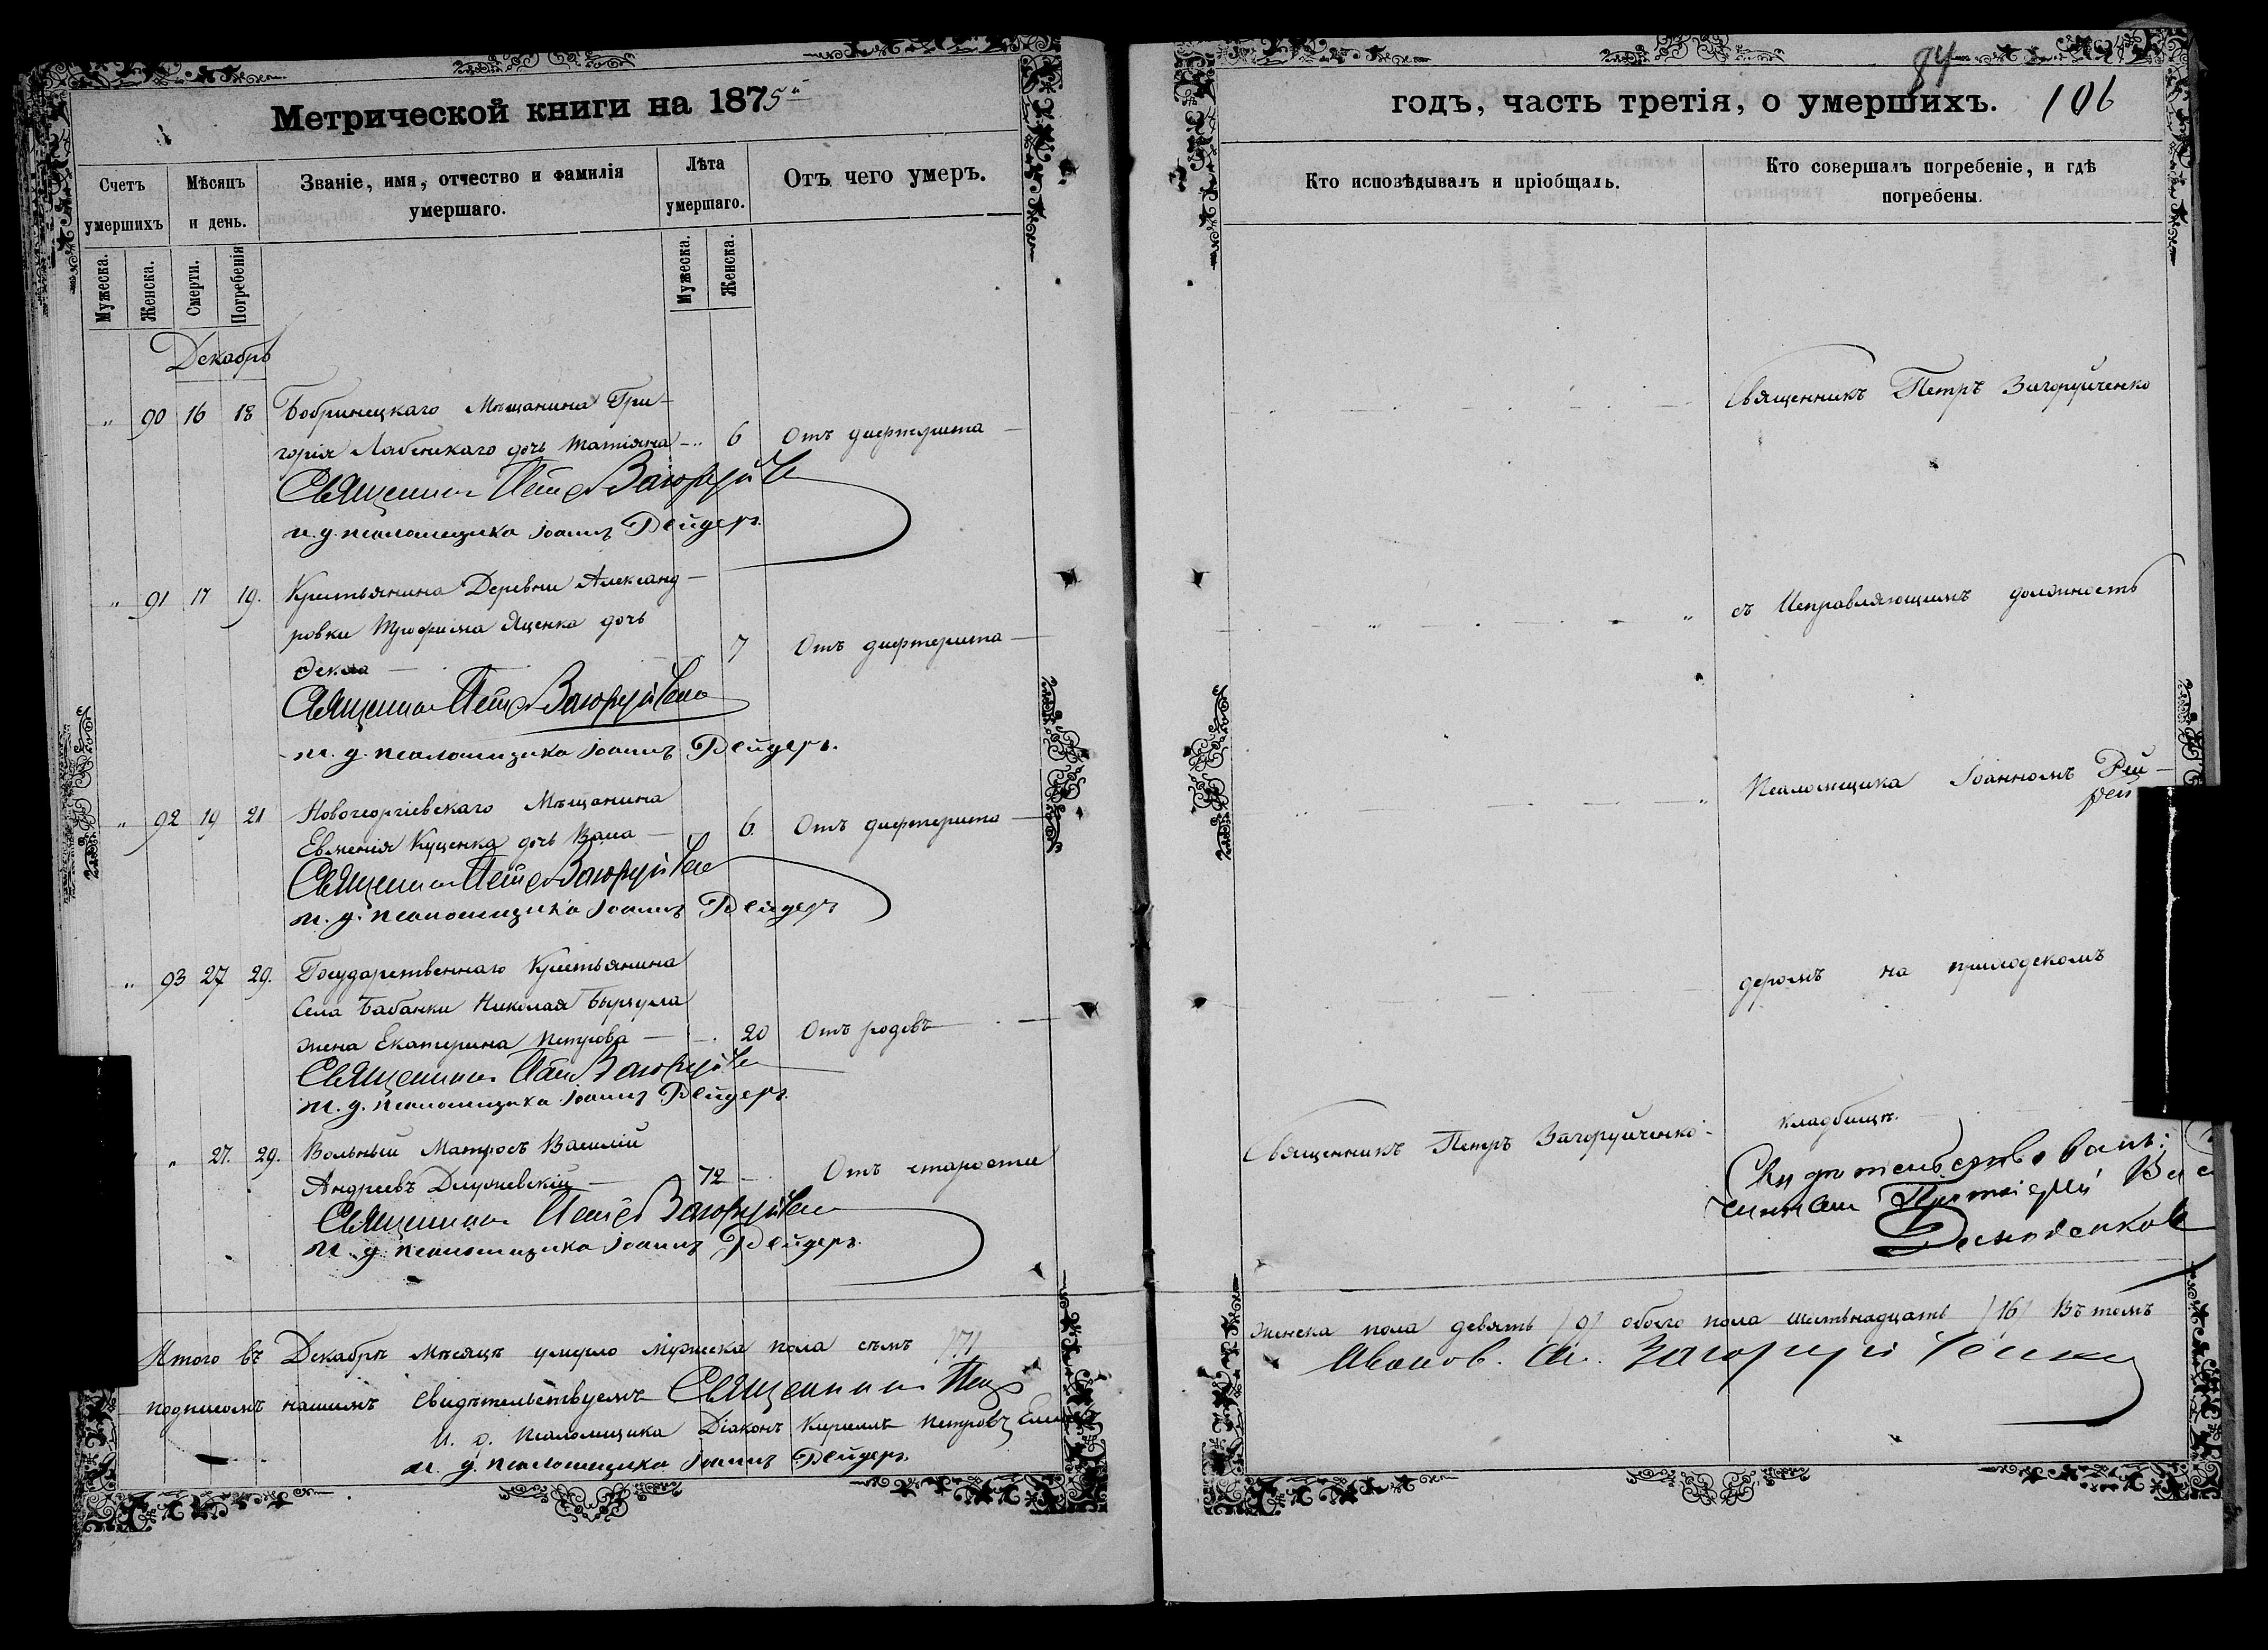 Метрической книги на 1875й
Счетъ умершихъ
Мѣсяцъ и день.
Званіе, имя, отчество и фамилія умершаго.
Лѣта умершаго.
Отъ чего умеръ.
Мужеска.
Женска.
Смерти.
Погребенія
Мужеска.
Женска.
Декабрь
„ 90 16 18 Бобринецкаго Мѣщанина Гри-
горія дочь Татіяна -„ 6 Отъ дифтерита
Священникъ Петръ Загоруйченко
и. д. псаломщика Іоаннъ Рейдеръ.
„ 91 17 19. Крестьянина Деревни Александ-
ровки Трофима Яценка дочь
Ѳекла 7 Отъ дифтерита
Священникъ Петръ Загоруйченко
и. д. псаломщика Іоаннъ Рейдеръ.
„ 92 19 21 Новогеоргіевскаго Мѣщанина
Евменія Куценка дочь 6. Отъ дифтерита
Священникъ Петръ Загоруйченко
и. д. псаломщика Іоаннъ Рейдеръ
„ 93 27 29. Государственнаго Крестьянина
Села Бабанки Николая
жена Екатерина Петрова 20 Отъ родовъ
Священникъ Петръ Загоруйченко
и. д. псаломщика Іоаннъ Рейдеръ.
„ 27. 29. Вольный Матросъ Василій
Андреевъ 72 Отъ старости
Священникъ Петръ Загоруйченко
и. д. псаломщика Іоаннъ Рейдеръ.
Итого въ Декабрѣ мѣсяцѣ умерло мужеска пола семь /7/
подписомъ нашимъ свидѣтельствуемъ Священникъ Петръ
И. д. псаломщика Діаконъ Кириллъ Петровъ
и. д. псаломщика Іоаннъ Рейдеръ.
84
годъ, часть третія, о умершихъ. 106
Кто исповѣдывалъ и пріобщалъ.
Кто совершалъ погребеніе, и гдѣ погребены.
Священникъ Петръ Загоруйченко
съ Исправляющимъ должность
Псаломщика Іоанномъ Рей-
деромъ на приходскомъ
Священникъ Петръ Загоруйченко
кладбищѣ.
Свидѣтельствовалъ:
Протоіерей
женска пола девять /9/ обоего пола шестьнадцать /16/ Въ томъ
Загоруйченко